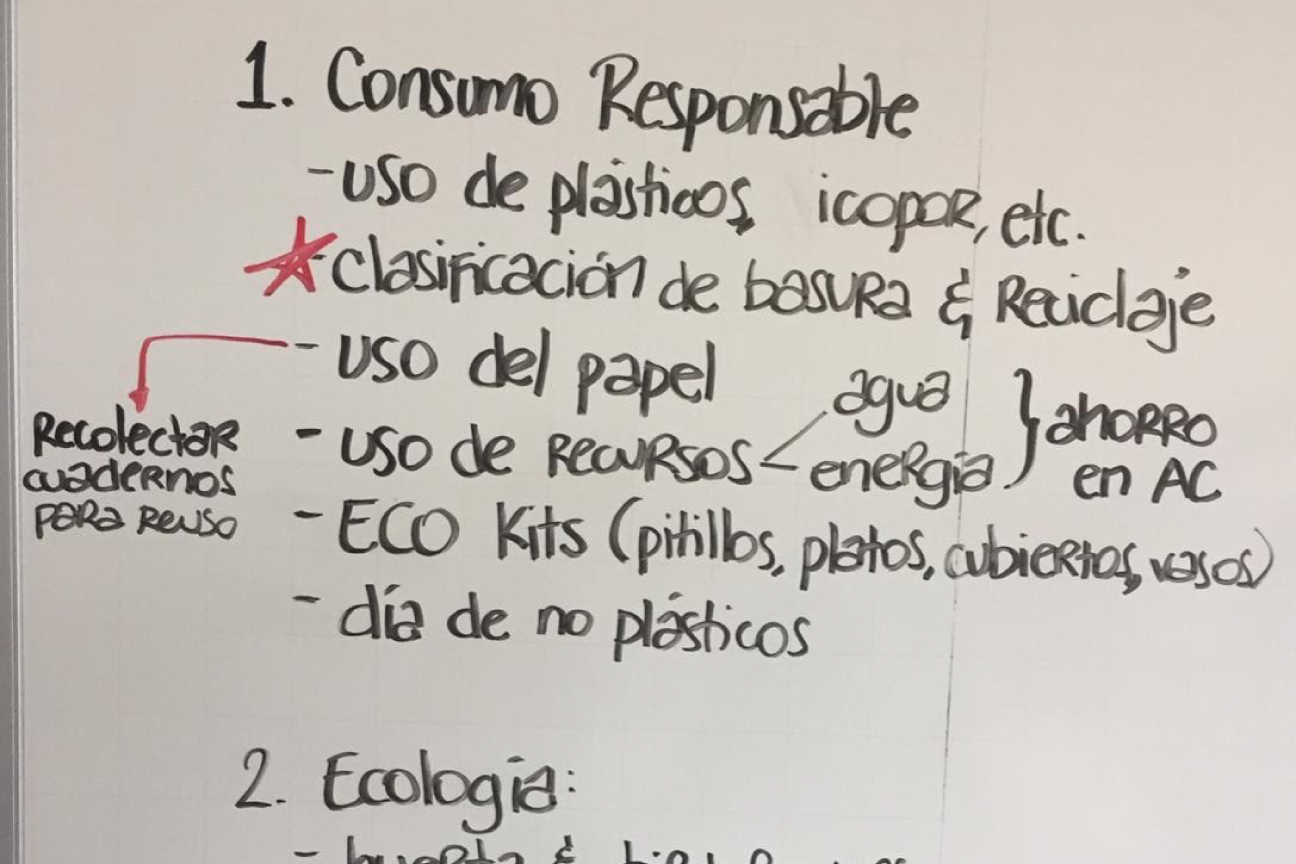 1. Consumo Responsable
- uso de plásticos, icopor, etc.
- clasificación de basura & Reciclaje
- uso del papel
Recolectar
cuadernos
para reuso
- uso de recursos < agua
energía } ahorro
en AC
- ECO Kits (pitillos, platos, cubiertos, vasos)
- día de no plásticos
2. Ecología:
- huerta &